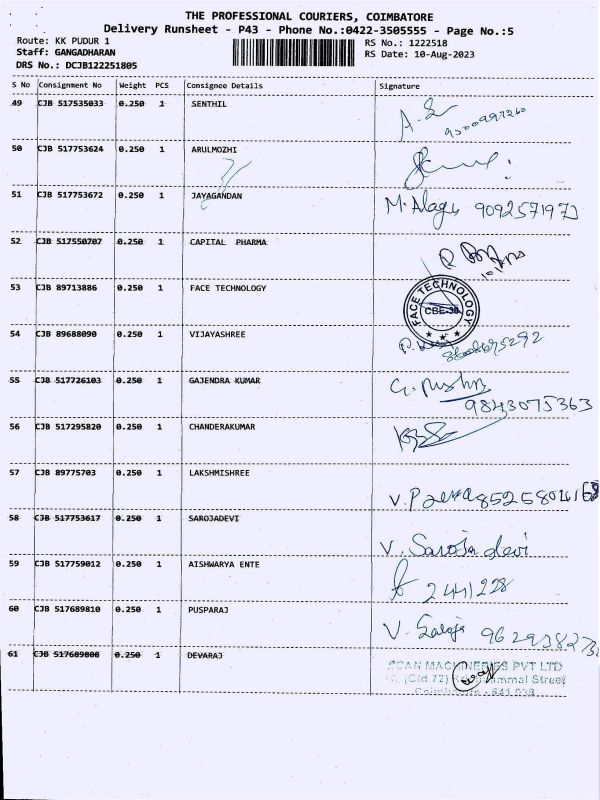 THE PROFESSIONAL COURIERS, COIMBATORE
Delivery Runsheet - P43 - Phone No.:0422-3505555 - Page No.:5
Route: KK PUDUR 1
RS No.: 1222518
Staff: GANGADHARAN
RS Date: 10-Aug-2023
DRS No.: DCJB122251805
S No Consignment No Weight PCS Consignee Details Signature
49 CJB 517535033 0.250 1 SENTHIL
50 CJB 517753624 0.250 1 ARULMOZHI
51 CJB 517753672 0.250 1 JAYAGANDAN M. Alagu
52 CJB 517550707 0.250 1 CAPITAL PHARMA
53 CJB 89713886 0.250 1 FACE TECHNOLOGY
FACE TECHNOLOGY
CBE-38
54 CJB 89688090 0.250 1 VIJAYASHREE
55 CJB 517726103 0.250 1 GAJENDRA KUMAR
9843075363
56 CJB 517295820 0.250 1 CHANDERAKUMAR
57 CJB 89775703 0.250 1 LAKSHMISHREE
58 CJB 517753617 0.250 1 SAROJADEVI V. Saroja devi
59 CJB 517759012 0.250 1 AISHWARYA ENTE 2441228
60 CJB 517689810 0.250 1 PUSPARAJ
61 CJB 517689808 0.250 1 DEVARAJ
SCAN MACHINERIES PVT LTD
(Old 72) Street
Coimbatore - 641 038